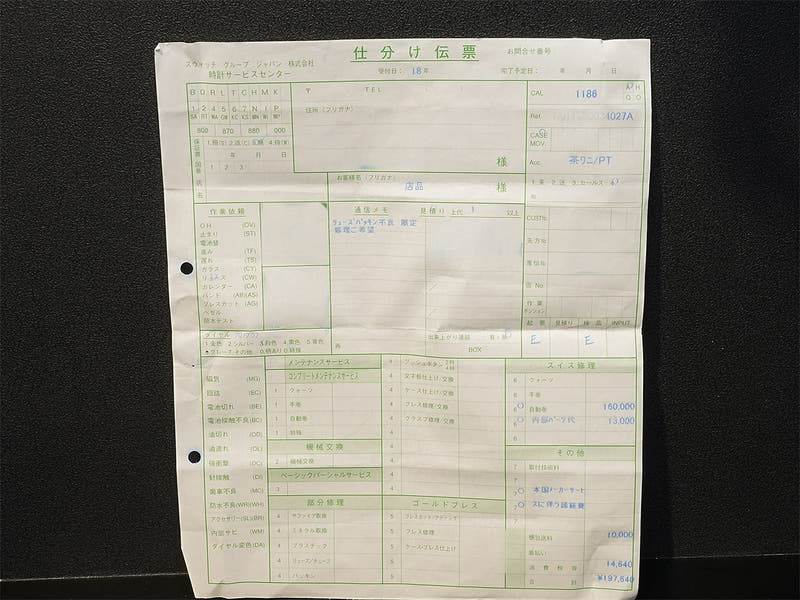 仕分け伝票
お問合せ番号
スウォッチ グループ ジャパン 株式会社
時計サービスセンター
受付日: 18年
完了予定日: 年 月 日
B O R L T C H M K
1 2 4 5 6 7 N I P
800 870 880 000
〒 TEL
住所 (フリガナ)
様
CAL 1186
Ref. 4027A
CASE
MOV.
Acc. 茶ワニ/PT
お客様名 (フリガナ)
店品 様
店名
作業依頼
OH (OV)
止まり (ST)
電池替
進み (TF)
遅れ (TS)
ガラス (CY)
りゅうず (CW)
カレンダー (CA)
バンド (AB)(AS)
ブレスカット (AG)
ベゼル
防水テスト
通信メモ
見積り 上代 1 以上
リューズパッキン不良 限定
修理ご希望
CUST№
先方№
店 No
作業
起票 見積り 検品 INPUT
E E
ダイヤル
1.金色 2.シルバー 3.白色 4.黒色 5.青色
出来上がり連絡
BOX
磁気 (MG)
回路 (EC)
電池切れ (BE)
電池接触不良 (BC)
油切れ (OD)
油流れ (OL)
強衝撃 (DC)
針接触 (DI)
歯車不良 (MC)
防水不良 (WR)(WH)
アクセサリー (SL)(BR)
内部サビ (WM)
ダイヤル変色 (DA)
メンテナンスサービス
コンプリートメンテナンスサービス
1 クォーツ
1 手巻
1 自動巻
1 特殊
機械交換
2 機械交換
ベーシックパーシャルサービス
3
部分修理
4 サファイア取換
4 ミネラル取換
4 プラスチック
4 リューズ/チューブ
4 パッキン
4 プッシュボタン 2時 4時
4 文字板仕上げ/交換
4 ケース仕上げ/交換
4 ブレス修理/交換
4 クラスプ修理/交換
4
4
4
4
ゴールドブレス
5 ブレスカット/アディング
5 ブレス修理
5 ケース・ブレス仕上げ
5
5
スイス修理
6 クォーツ
6 手巻
6 自動巻 160,000
6 内部パーツ代 13,000
6
その他
7 取付技術料
7
7 本国メーカーサービ
7 スに伴う諸経費
7
梱包送料 10,000
前払い
消費税等 14,640
合計 ¥197,640